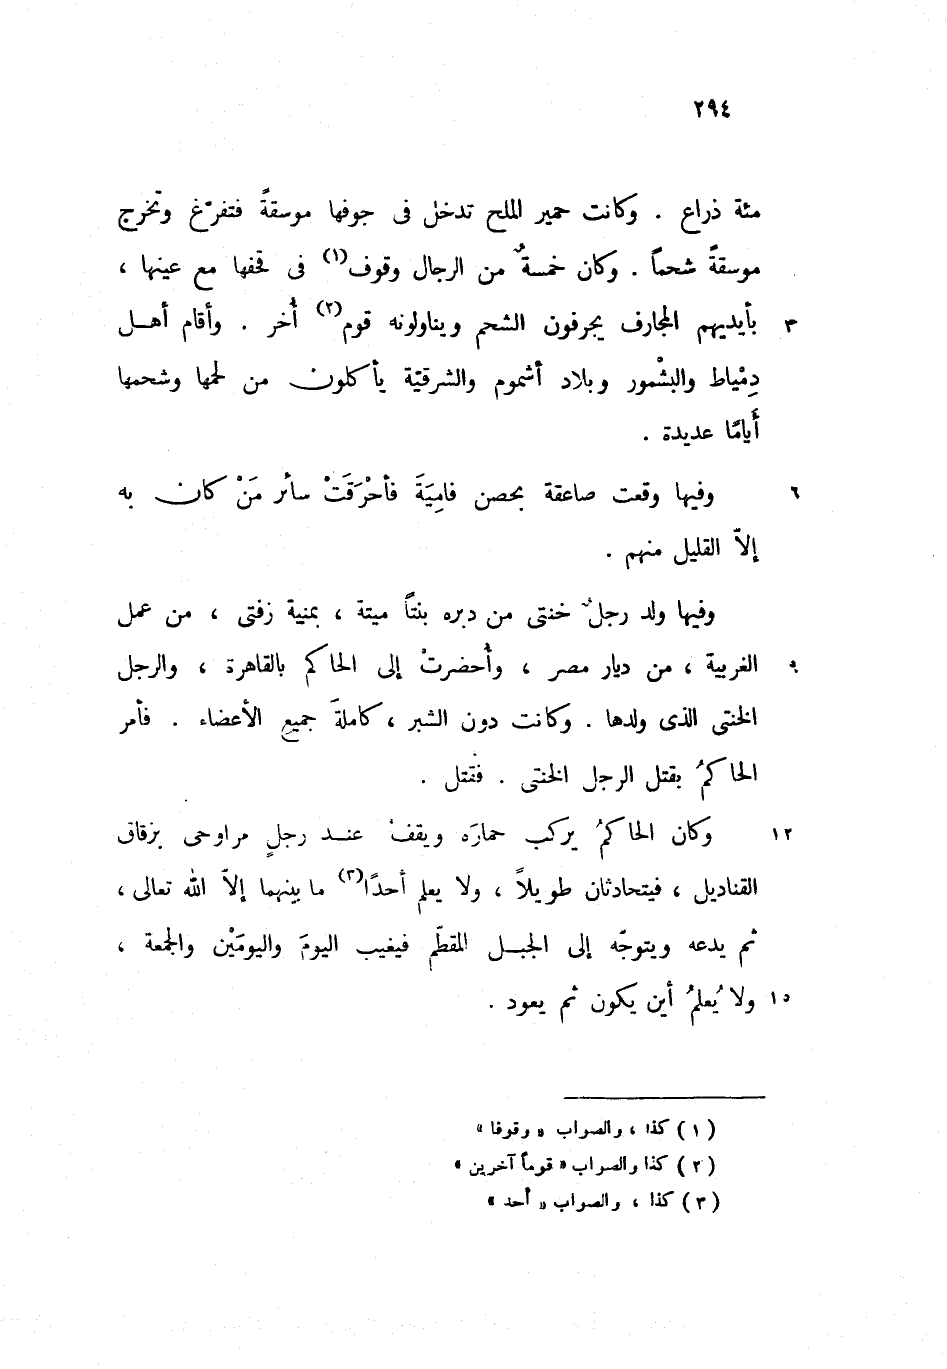 ٢٩٤
مئة ذراع . وكانت حمير الملح تدخل فى جوفها موسقةً فتفرّغ وتخرج
موسقةً شحماً . وكان خمسةٌ من الرجال وقوف(١) فى قحفها مع عينها ،
٣ بأيديهم المجارف يجرفون الشحم ويناولونه قوم(٢) أُخر . وأقام أهل
دِمْياط والبشْمور وبلاد أشموم والشرقيّة يأكلون من لحمها وشحمها
أَيامًا عديدة .
٦ وفيها وقعت صاعقة بحصن فامِيَةَ فأحْرَقَتْ سائر مَنْ كان به
إلاّ القليل منهم .
وفيها ولد رجلٌ خنثى من دبره بنتاً ميتة ، بمنية زفتى ، من عمل
٩ الغربية ، من ديار مصر ، وأُحضرتْ إلى الحاكم بالقاهرة ، والرجل
الخنثى الذى ولدها . وكانت دون الشبر ، كاملةَ جميع الأعضاء . فأمر
الحاكمُ بقتل الرجل الخنثى . فقتل .
١٢ وكان الحاكمُ يركب حمارَه ويقفُ عند رجلٍ مراوحى بزقاق
القناديل ، فيتحادثان طويلاً ، ولا يعلم أحدًا(٣) ما بينهما إلاّ الله تعالى ،
ثم يدعه ويتوجّه إلى الجبل المقطّم فيغيب اليومَ واليومَيْن والجمعة ،
١٥ ولا يُعلمُ أين يكون ثم يعود .
(١) كذا ، والصواب « وقوفا »
(٢) كذا والصواب « قوماً آخرين »
(٣) كذا ، والصواب « أحد »